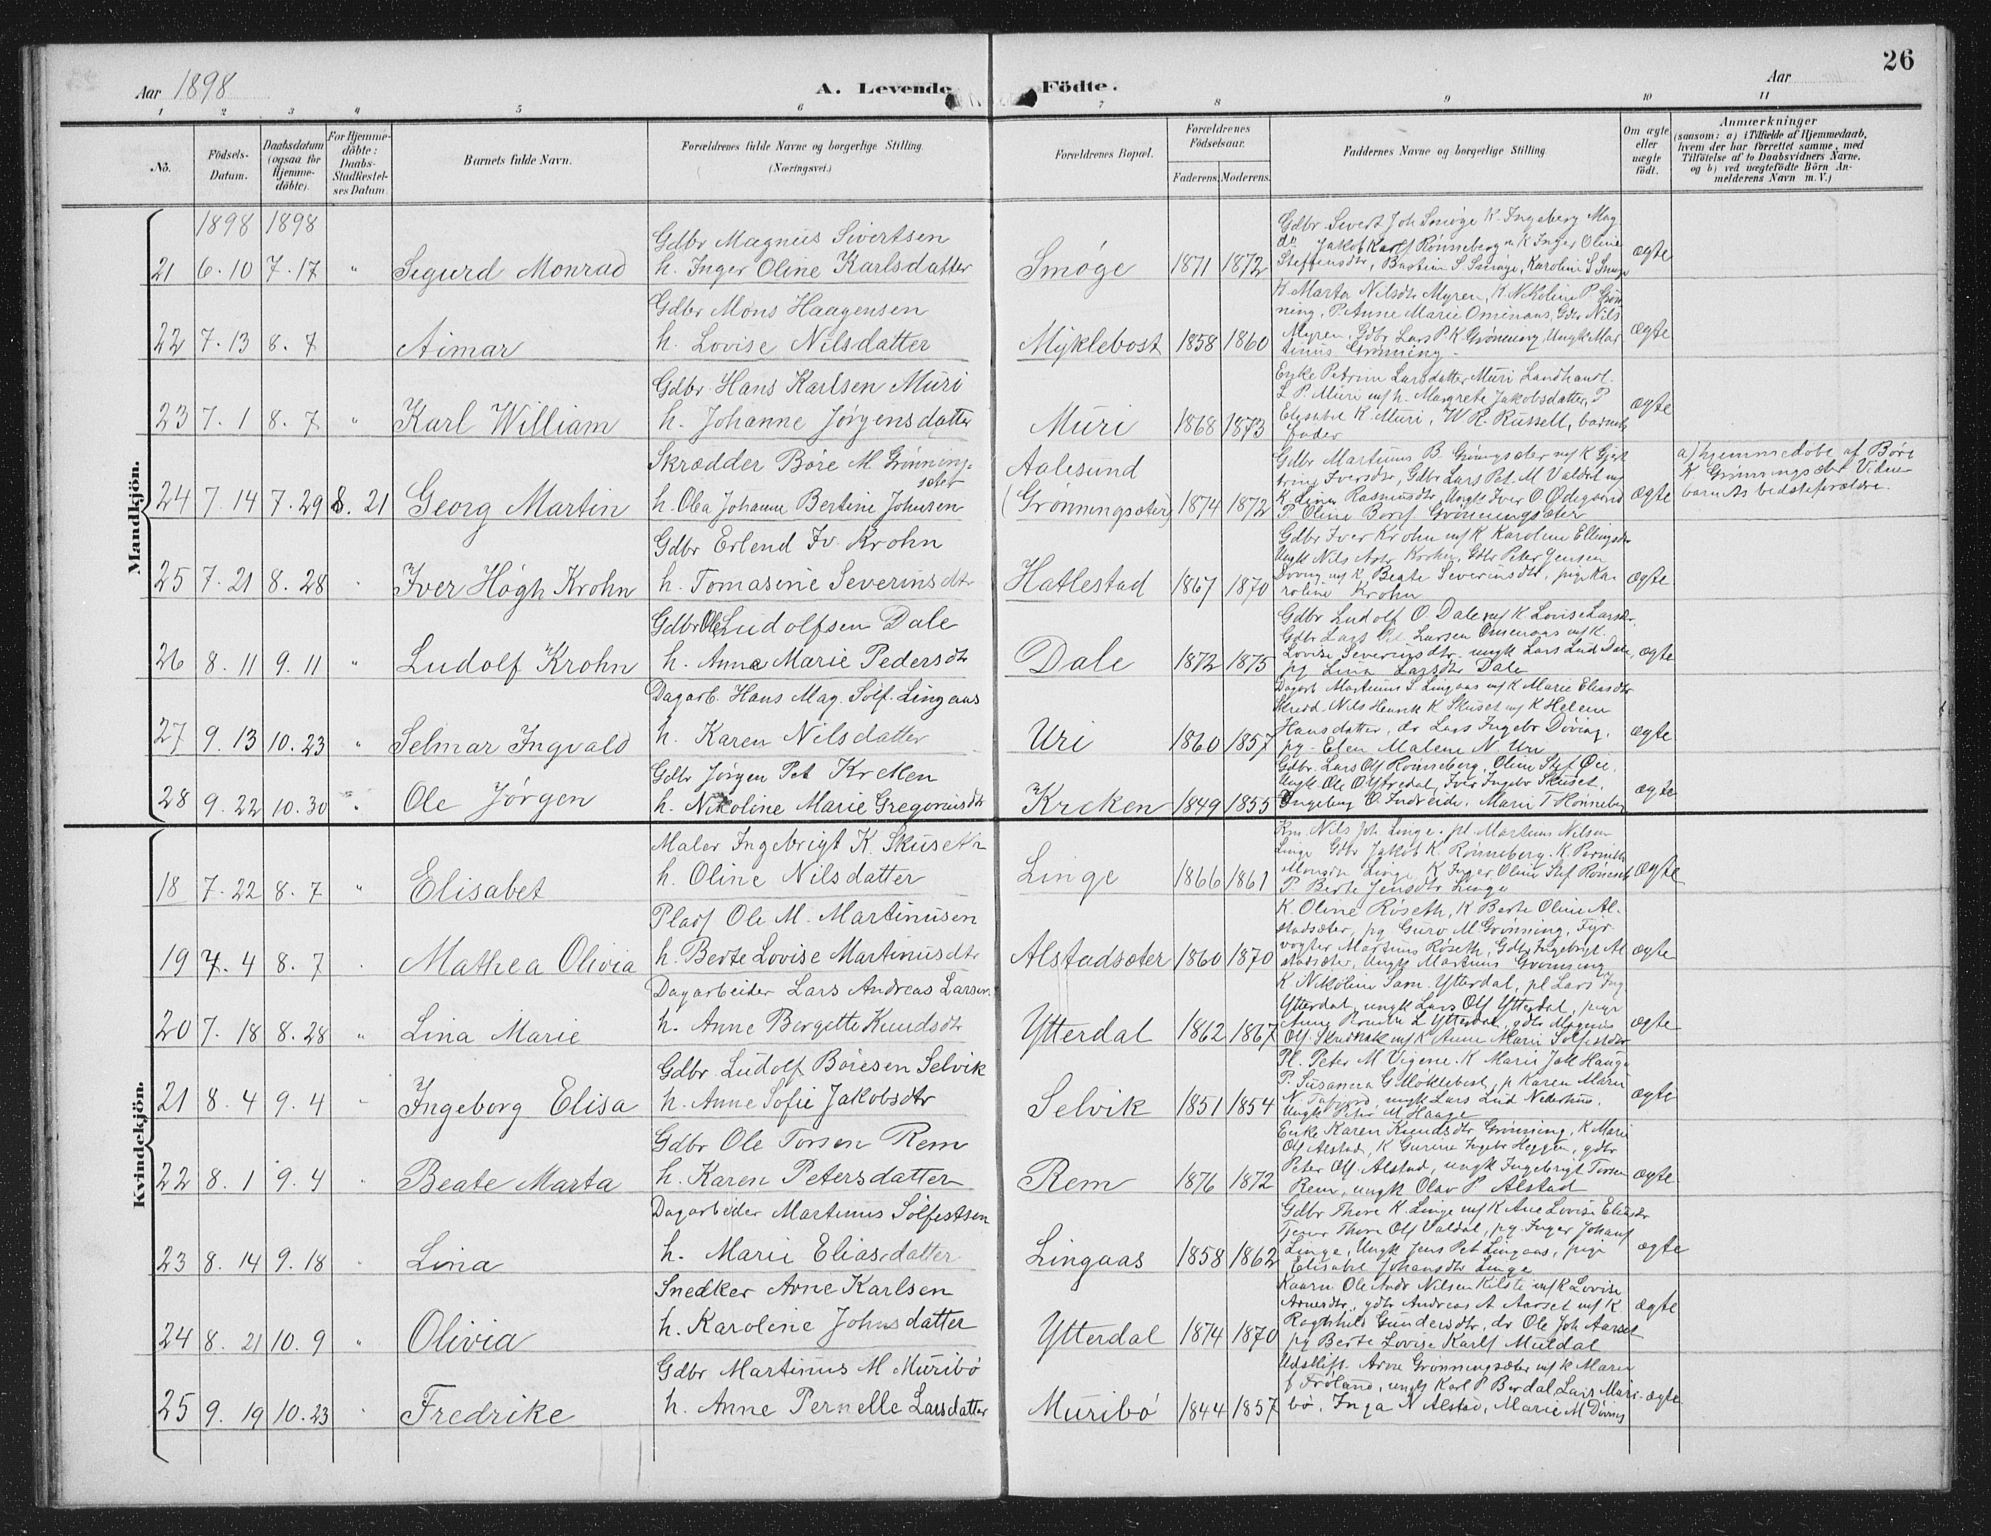 26
Aar 1898 A. Levende Födte. Aar
1 2 3 4 5 6 7 8 9 10 11
No. Födsels-Datum. Daabsdatum (ogsaa for Hjemmedöbte). For Hjemmedöbte: Daabs-Stadfæstelses Datum. Barnets fulde Navn. Forældrenes fulde Navne og borgerlige Stilling. (Næringsvei.) Forældrenes Bopæl. Forældrenes Födselsaar. Faderens. Moderens. Faddernes Navne og borgerlige Stilling Om ægte eller uægte födt. Anmærkninger (saasom: a) i Tilfælde af Hjemmedaab, hvem der har forrettet samme, med Tilföielse af to Daabsvidners Navne, og b) ved uægtefödte Börn Anmelderens Navn m. V.)
Mandkjön.
1898 1898
Gdbr Magnus Sivertsen
21 6.10 7.17 " Sigurd Monrad h. Inger Oline Karlsdatter Smøge 1871 1872 ægte
Gdbr Sivert Joh Smøge K. Ingeberg Mag
Jakob Karls Rønneberg K Inger Oline
Steffensdtr, Bastian S Smøge, Karoline S Smøge
Gdbr Mons Haagensen
22 7.13 8.7 Aimar h. Lovise Nilsdatter Myklebost 1858 1860 ægte
K Marta Nilsdtr Myren, K Nikoline P Grøn
ning, P. Anne Marie Omenaas, Gdbr Nils
Myren, Gdbr Lars P. K Grønning, Ungk Mar
tinus Grønning
Gdbr Hans Karlsen Muri
23 7.1 8.7 " Karl William h. Johanne Jørgensdatter Muri 1868 1873 ægte
Enke Petrine Larsdatter Muri Landhandl.
L P. Muri m/h. Margrete Jakobsdatter, P
Elisabet K. Muri, W. R. Russell, barnets
fader
Skrædder Bore M Grønning-
sæter
24 7.14 7.29 8.21 Georg Martin h. Olea Johanne Bertine Johnsen Aalesund (Grønningsæter) 1874 1872 ægte
Gdbr Martinus B. Grøningsæter m/K
trine Iversdtr, Gdbr Lars Pet. M Valdal m/
K Lina Rasmusdtr, Ungk Iver O Ødegaard
P Oline Bors Grønningsæter
a) hjemmedøbt af Børe
K Grønningsæter Vidner
barnets bedsteforældre.
Gdbr Erlend Iv. Krohn
25 7.21 8.28 " Iver Høgh Krohn h. Tomasine Severinsdtr Hatlestad 1867 1870 ægte
Gdbr Iver Krohn m/K Karoline Ellingsdtr
Ungk Nils Krohn, Gdbr Peter Jensen
Døving m/K Beate Severinsdtr, pige Ka
roline Krohn
Gdbr Ole Ludolfsen Dale
26 8.11 9.11 " Ludolf Krohn h. Anna Marie Pedersdtr Dale 1872 1875 ægte
Gdbr Ludolf O. Dale m/K Lovise Larsdtr.
Gdbr Lars Larsen Omenaas m/K.
Lovise Severinsdtr. ungk Lars Lud Dale,
pg Lina Larsdtr Dale
Dagarb. Hans Mag. Solf. Lingaas
27 9.13 10.23 " Selmar Ingvald h. Karen Nilsdatter Uri 1860 1857 ægte
Dagarb Martinus S. Lingaas m/K Marie Eliasdtr
Skred. Nils Henrik K Skuset m/K Helene
Hansdatter, dr Lars Ingebr Døving,
pg. Elen Malene N. Uri
Gdbr Jørgen Pet Krekken
28 9.22 10.30 " Ole Jørgen h. Nikoline Marie Gregoriusdtr Krekken 1849 1855 ægte
Gdbr. Lars Ol Rønneberg, Oline Stef Øie,
Ungk Ole O Ytredal, Iver Ingebr Skuset,
Ingeberg O. Indreide, Marie T Rønneberg
Kvindekjön.
Maler Ingebrigt K. Skuseth
18 7.22 8.7 " Elisabet h. Oline Nilsdatter Linge 1866 1861 ægte
Km Nils Joh. Linge. pl. Martinus Nilsen
Linge Gdbr Jakob K. Rønneberg. K. Pernille
Linge, K Inger Oline Stef Rønneb
P. Berte Jensdtr Linge
Plads Ole M. Martinusen
19 7.4 8.7 Mathea Olivia h. Berte Lovise Martinusdtr Alstadsæter 1860 1870 ægte
K. Oline Røseth, K Berte Oline Al-
stadsæter, pg Guro M Grønning, Fyr
vogter Martinus Røseth, Gdbr Ingebrigt Al
stadsæter, Ungk Martinus Grønning
Dagarbeider Lars Andreas Larsen
20 7.18 8.28 " Lina Marie h. Anne Bergitte Knudsdtr Ytterdal 1862 1867 ægte
K Nikoline Sam. Ytterdal, pl Lars Ing
Ytterdal, ungk Lars Ols Ytterdal, pige
Anne L Ytterdal, gdbr Magnus
Ols. m/K Anne Marie Solfestsdtr
Gdbr. Ludolf Boresen Selvik
21 8.4 9.4 Ingeborg Elisa h. Anne Sofie Jakobsdtr Selvik 1851 1854 ægte
Pl. Peter M Vigene. K Marie Jak Hauge
P. Susanna G Moklebost, p Karen Marie
N. Tafjord, ungk Lars Lud Nederhus,
Ungk Peter M Hauge
Gdbr Ole Torsen Rem
22 8.1 9.4 Beate Marta h. Karen Petersdatter Rem 1876 1872 ægte
Enke Karen Knudsdtr Grønning, K Marie
Ols Alstad, K Gurine Ingebr Heggen, gdbr
Peter Ols. Alstad, ungk Ingebrigt Torsen
Rem, ungk Olav P. Alstad
Dagarbeider Martinus Solfestsen
23 8.14 9.18 Lina h. Marie Eliasdatter Lingaas 1858 1862 ægte
Gdbr Thore K. Linge m/K Ane Lovise Eliasdtr
Thore Ols Valdal, pg. Inger Johans
Linge, Ungk Jens Pet Lingaas, pige
Elisabet Johansdtr Linge
Snedker Arne Karlsen
24 8.21 10.9 " Olivia h. Karoline Johnsdatter Ytterdal 1874 1870 ægte
Kaarm Ole Andr Nilsen Kilsti m/K Lovise
Arnesdtr, gdbr Andreas A Aarset m/K
Ragnhild Gundersdtr, dr Ole Joh Aarset
pg Berte Lovise Karls Muldal
Gdbr Martinus M Muribø
25 9.19 10.23 Fredrike h. Anne Pernelle Larsdatter Muribø 1844 1857 ægte
Udskift. Arne Grønningsæter m/K Maren
f Frøland, ungk Karl P Berdal, Lars Muri-
bø, Inga N Alstad, Marie M Døving